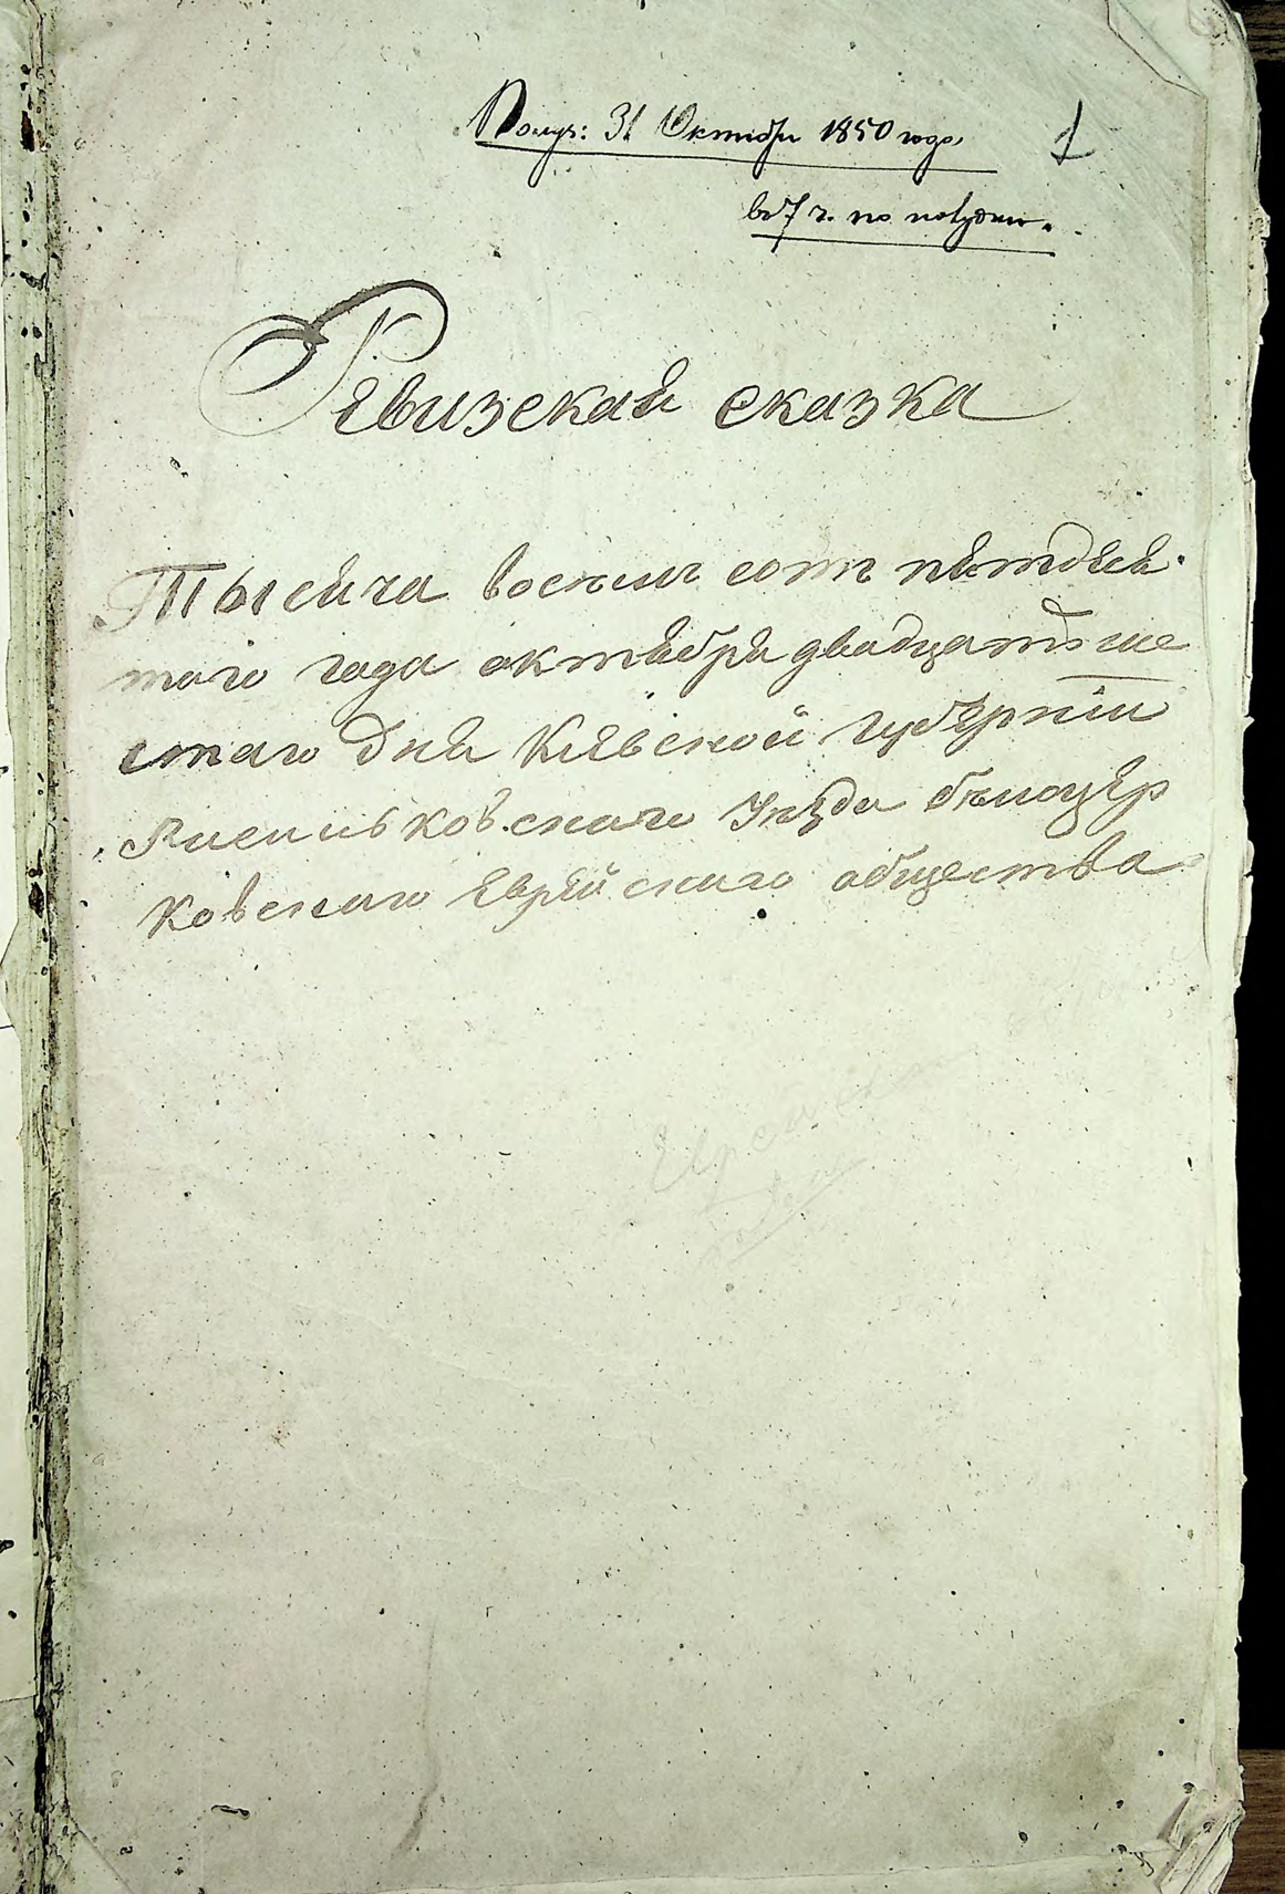 Получ: 31 Октября 1850 года
1
въ 7 ч. по полудни.
Ревизская сказка
Тысяча восемъ сотъ пятдеся
таго года октября двадцать ше
стаго дня Киевской губерніи
Василковскаго Уезда белоцер
ковского Еврейскаго общества